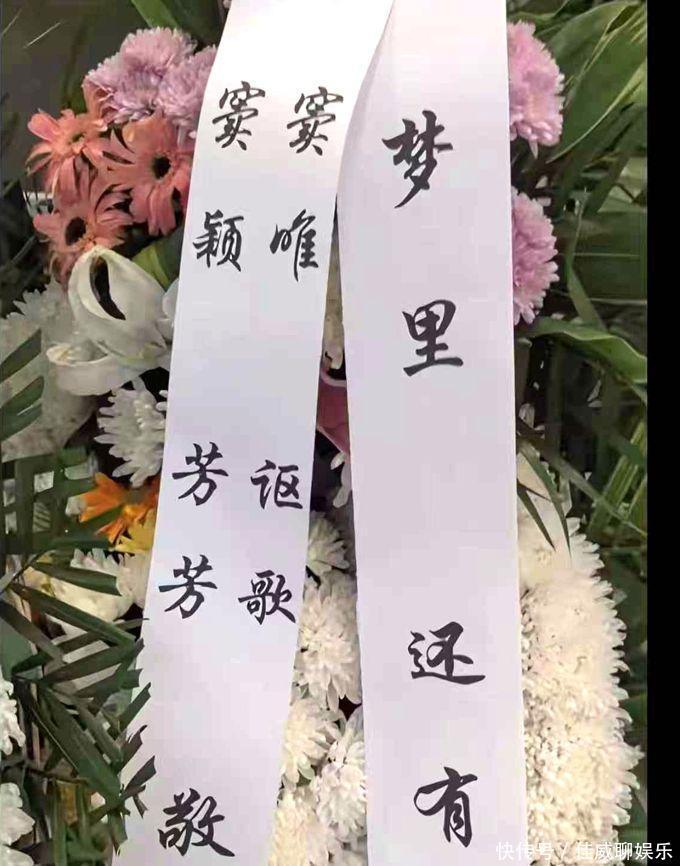 梦里 还有
窦唯 讴歌
窦颖 芳芳 敬
快传号 / 佳威聊娱乐